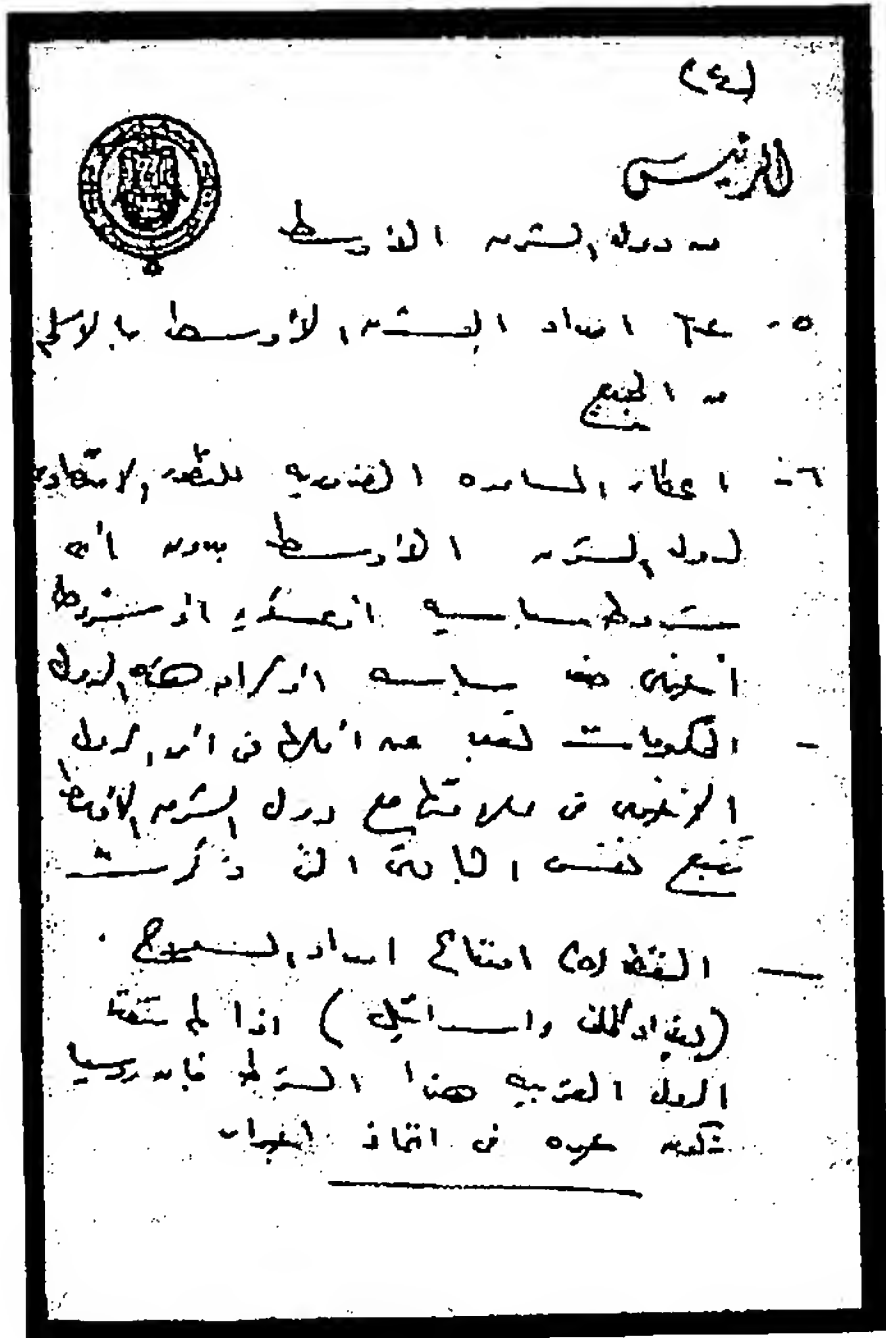 (٤)
الرئيس
من دول الشرق الأوسط
٥- عدم امداد الشرق الأوسط بالاسلحة
من الجميع
٦- اعطاء المساعده الضروريه للتطور الاقتصادى
لدول الشرق الأوسط بدون أيه
شروط سياسيه أو عسكريه أو شروط
أخرى ضد سياسه أو كرامه هذه الدول
- الحكومات تعبر عن أملها فى أن الدول
الأخرى فى علاقتها مع دول الشرق الأوسط
تتبع نفس المبادئ التى ذكرت
— النقطه (٥) امتناع امداد السلاح.
(بغداد وإسرائيل) اذا لم تنفذ
الدول الغربيه هذا الشرط فان روسيا
تكون حره فى اتخاذ